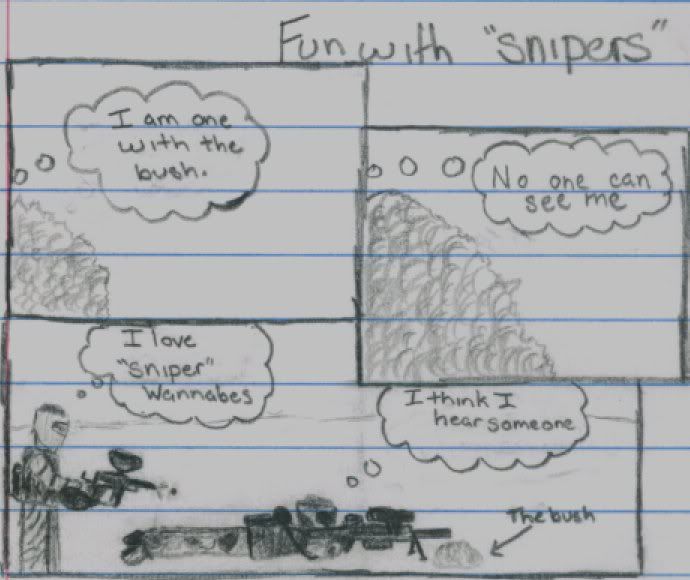 Fun with "snipers"
I am one
with the
bush.
No one can
see me
I love
"sniper"
Wannabes
I think I
hear someone
The bush